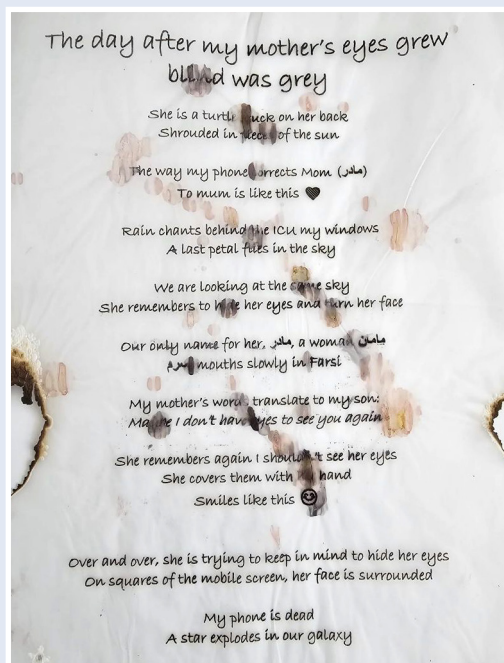 The day after my mother's eyes grew
blind was grey
She is a turtle stuck on her back
Shrouded in of the sun
The way my phone corrects Mom (مادر)
To mum is like this ♥
Rain chants behind the ICU my windows
A last petal flies in the sky
We are looking at the same sky
She remembers to hide her eyes and turn her face
Our only name for her, مادر, a woman مامان
پسرم mouths slowly in Farsi
My mother's words translate to my son:
Maybe I don't have eyes to see you again
She remembers again I shouldn't see her eyes
She covers them with hand
Smiles like this ☺
Over and over, she is trying to keep in mind to hide her eyes
On squares of the mobile screen, her face is surrounded
My phone is dead
A star explodes in our galaxy